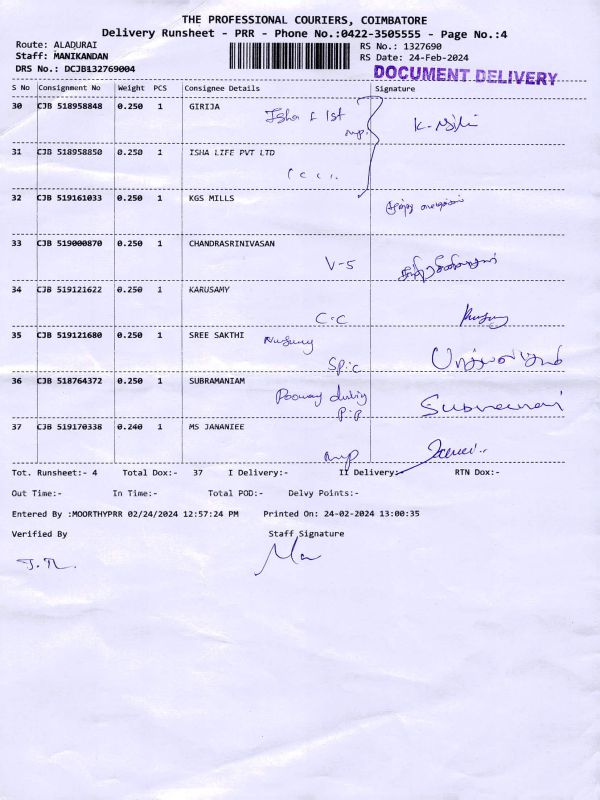 THE PROFESSIONAL COURIERS, COIMBATORE
Delivery Runsheet - PRR - Phone No.:0422-3505555 - Page No.:4
Route: ALADURAI
RS No.: 1327690
Staff: MANIKANDAN
RS Date: 24-Feb-2024
DRS No.: DCJB132769004
DOCUMENT DELIVERY
S No Consignment No Weight PCS Consignee Details Signature
30 CJB 518958848 0.250 1 GIRIJA
Isha & 1st
31 CJB 518958850 0.250 1 ISHA LIFE PVT LTD
32 CJB 519161033 0.250 1 KGS MILLS
33 CJB 519000870 0.250 1 CHANDRASRINIVASAN
V-5
34 CJB 519121622 0.250 1 KARUSAMY
C.C
35 CJB 519121680 0.250 1 SREE SAKTHI
36 CJB 518764372 0.250 1 SUBRAMANIAM
37 CJB 519170338 0.240 1 MS JANANIEE
Tot. Runsheet:- 4 Total Dox:- 37 I Delivery:- II Delivery:- RTN Dox:-
Out Time:- In Time:- Total POD:- Delvy Points:-
Entered By :MOORTHYPRR 02/24/2024 12:57:24 PM Printed On: 24-02-2024 13:00:35
Verified By Staff Signature